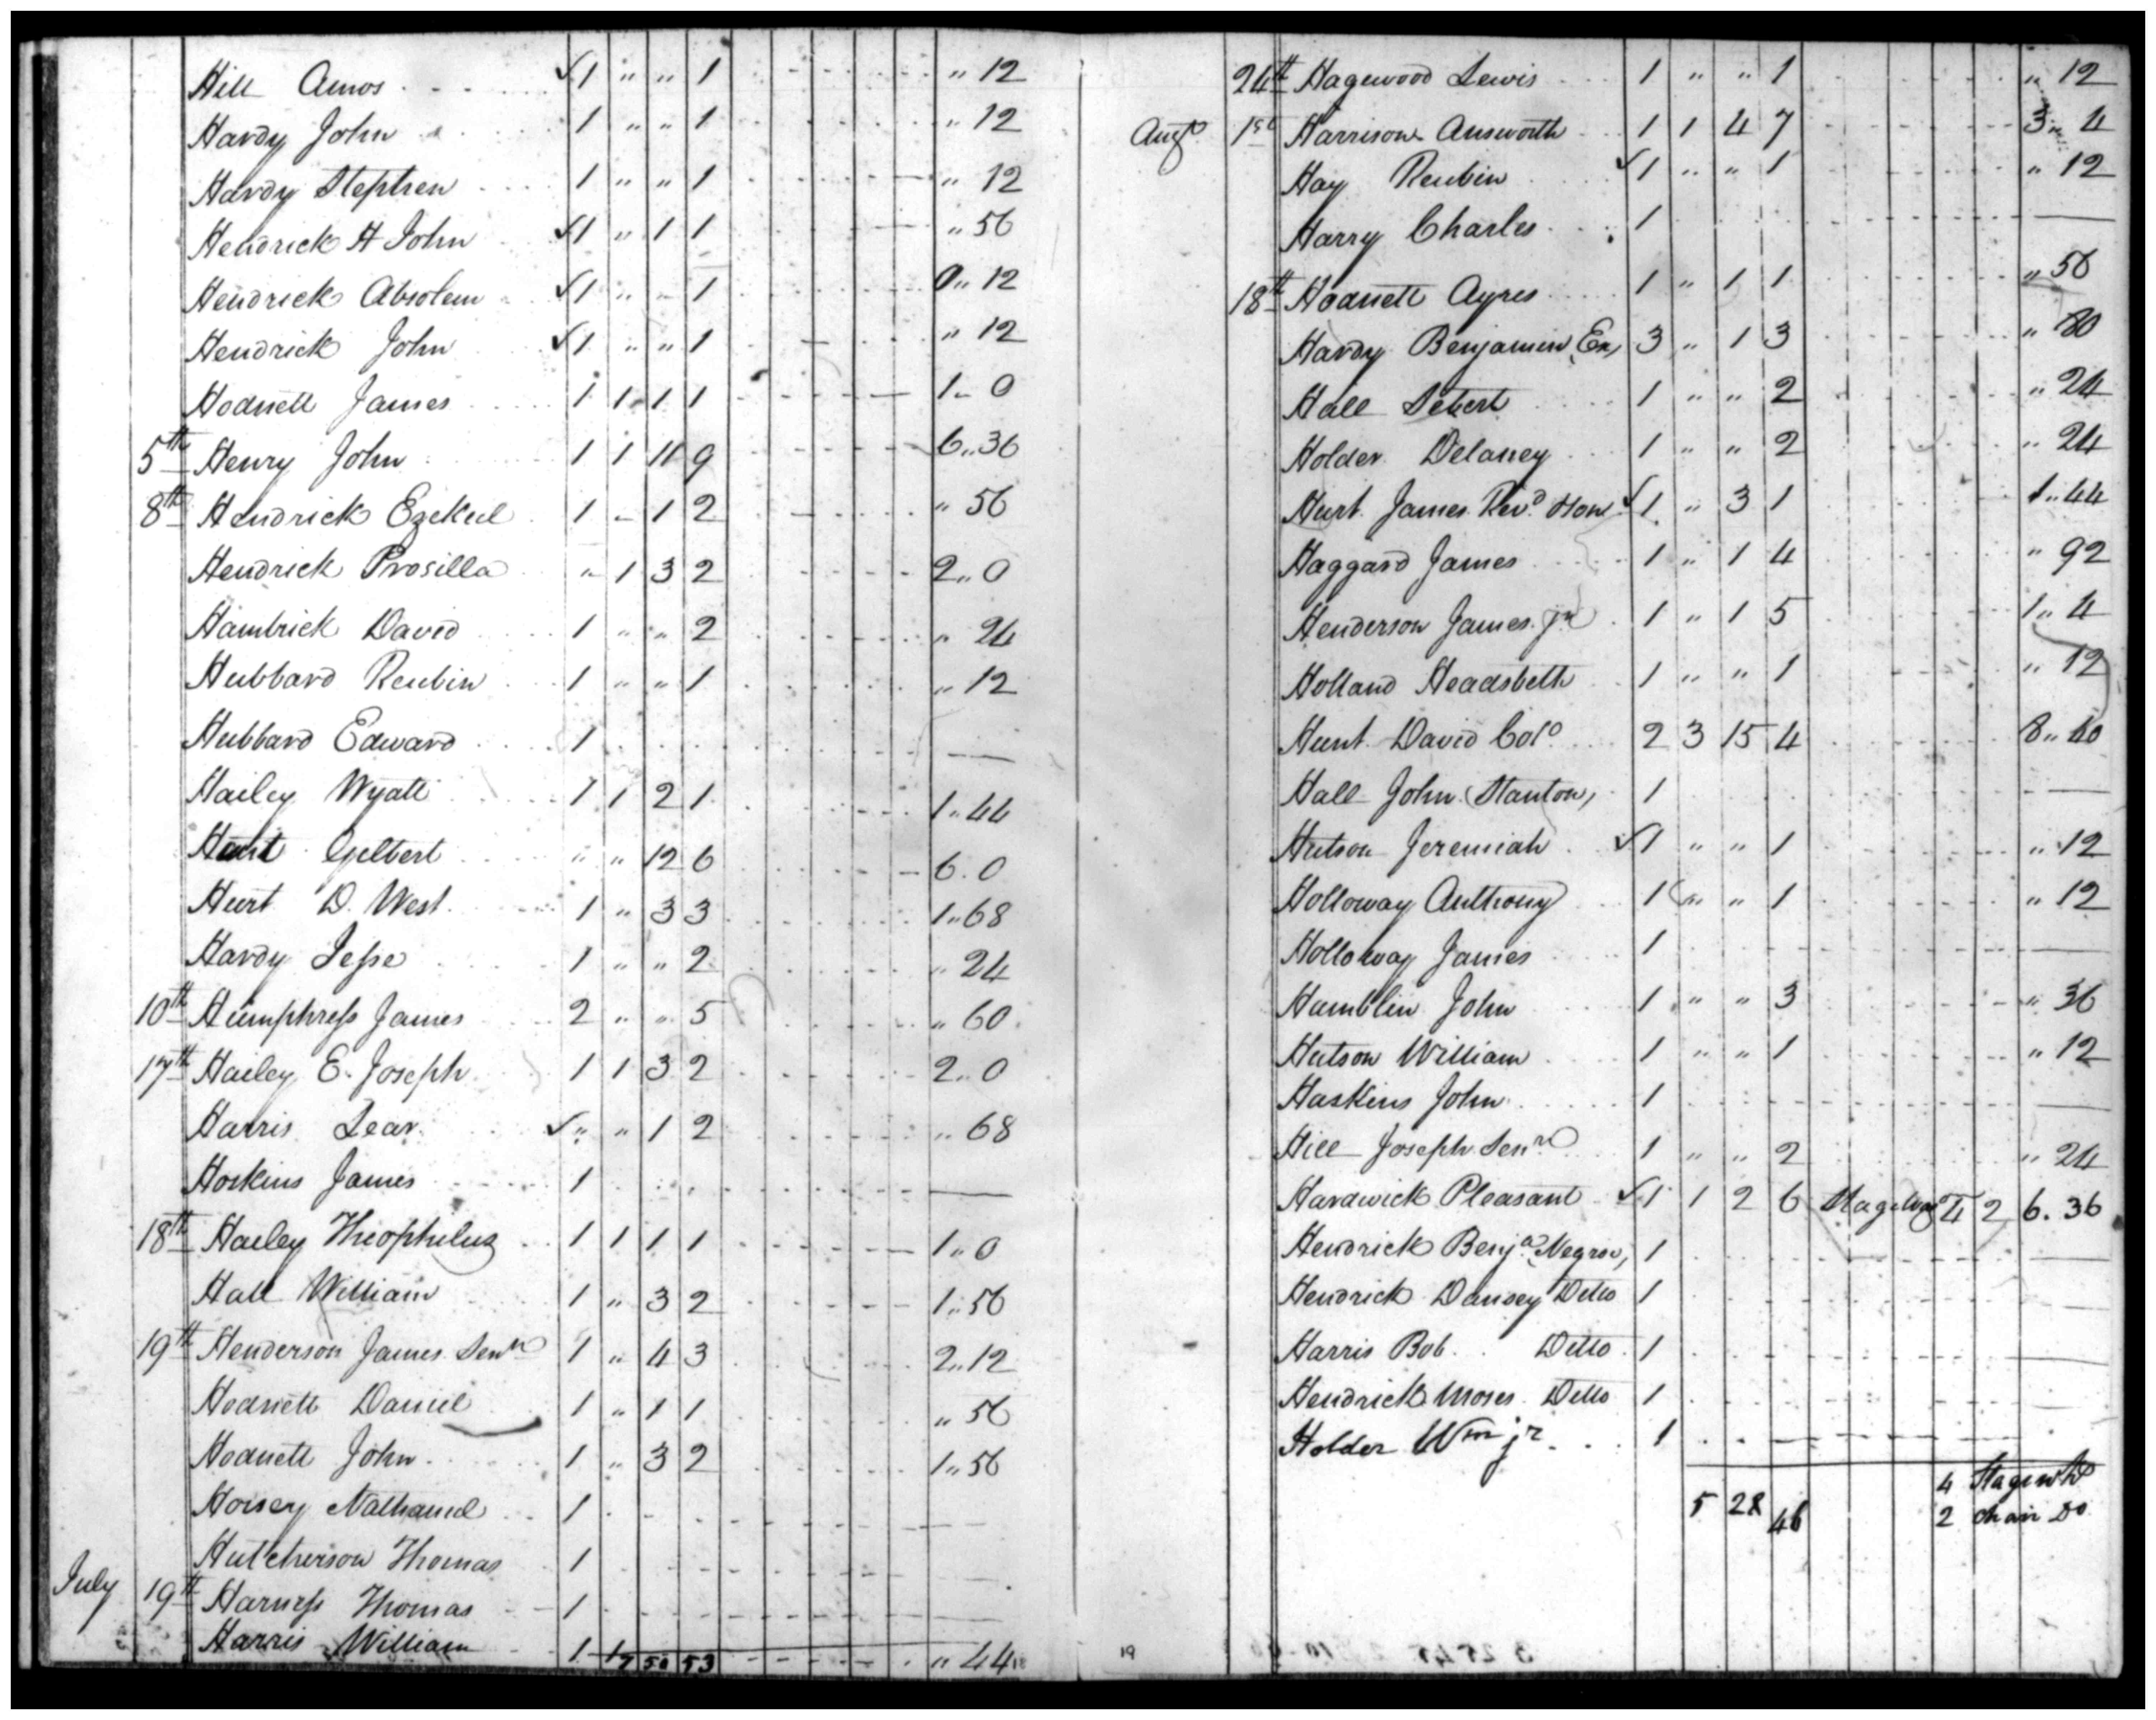 Hill Amos √1 " " 1 " 12
Hardy John 1 " " 1 " 12
Hardy Stephen 1 " " 1 " 12
Hendrick H John √1 " 1 1 " 56
Hendrick Absolem √1 " " 1 0" 12
Hendrick John √1 " " 1 " 12
Hodnett James 1 1 1 1 1" 0
5th Henry John 1 1 11 9 6" 36
8th Hendrick Ezekiel 1 " 1 2 " 56
Hendrick Prosilla " 1 3 2 2" 0
Hambrick David 1 " " 2 " 24
Hubbard Reubin 1 " " 1 " 12
Hubbard Edward 1
Hailey Wyatt 1 1 2 1 1" 44
Hunt Gilbert " " 12 6 6" 0
Hurt D. West 1 " 3 3 1" 68
Hardy Jesse 1 " " 2 " 24
10th Humphress James 2 " " 5 " 60
17th Hailey E. Joseph 1 1 3 2 2" 0
Harris Lear √" " 1 2 " 68
Hoskins James 1
18th Hailey Theophilus 1 1 1 1 1" 0
Hall William 1 " 3 2 1" 56
19th Henderson James Senr 1 " 4 3 2" 12
Hodnett Daniel 1 " 1 1 " 56
Hodnett John 1 " 3 2 1" 56
Horsey Nathaniel 1
Hutcherson Thomas 1
July 19th Harness Thomas 1
Harris William 1 1 " 44
7 50 53
24th Hagewood Lewis 1 " " 1 " 12
Augt 1st Harrison Answorth 1 1 4 7 3" 4
Hay Reubin √1 " " 1 " 12
Harry Charles 1
18th Hodnett Ayres 1 " 1 1 " 56
Hardy Benjamin (Ex) 3 " 1 3 " 80
Hall 1 " " 2 " 24
Holder Delaney 1 " " 2 " 24
Hurt James Revd √1 " 3 1 1" 44
Haggard James 1 " 1 4 " 92
Henderson James jr 1 " 1 5 1" 4
Holland Headsbeth 1 " " 1 " 12
Hunt David Colo 2 3 15 4 8" 40
Hall John (Stanton) 1
Hutson Jeremiah √1 " " 1 " 12
Holloway Anthony 1 " " 1 " 12
Holloway James 1
Hamblin John 1 " " 3 " 36
Hutson William 1 " " 1 " 12
Haskins John 1
Hill Joseph Senr 1 " " 2 " 24
Hardwick Pleasant √1 1 2 6 4 2 6. 36
Hendrick Benja (Negroe) 1
Hendrick Dansey Ditto 1
Harris Bob Ditto 1
Hendrick Moses Ditto 1
Holder Wm jr 1
4
5 28 46 2 chair Do
19